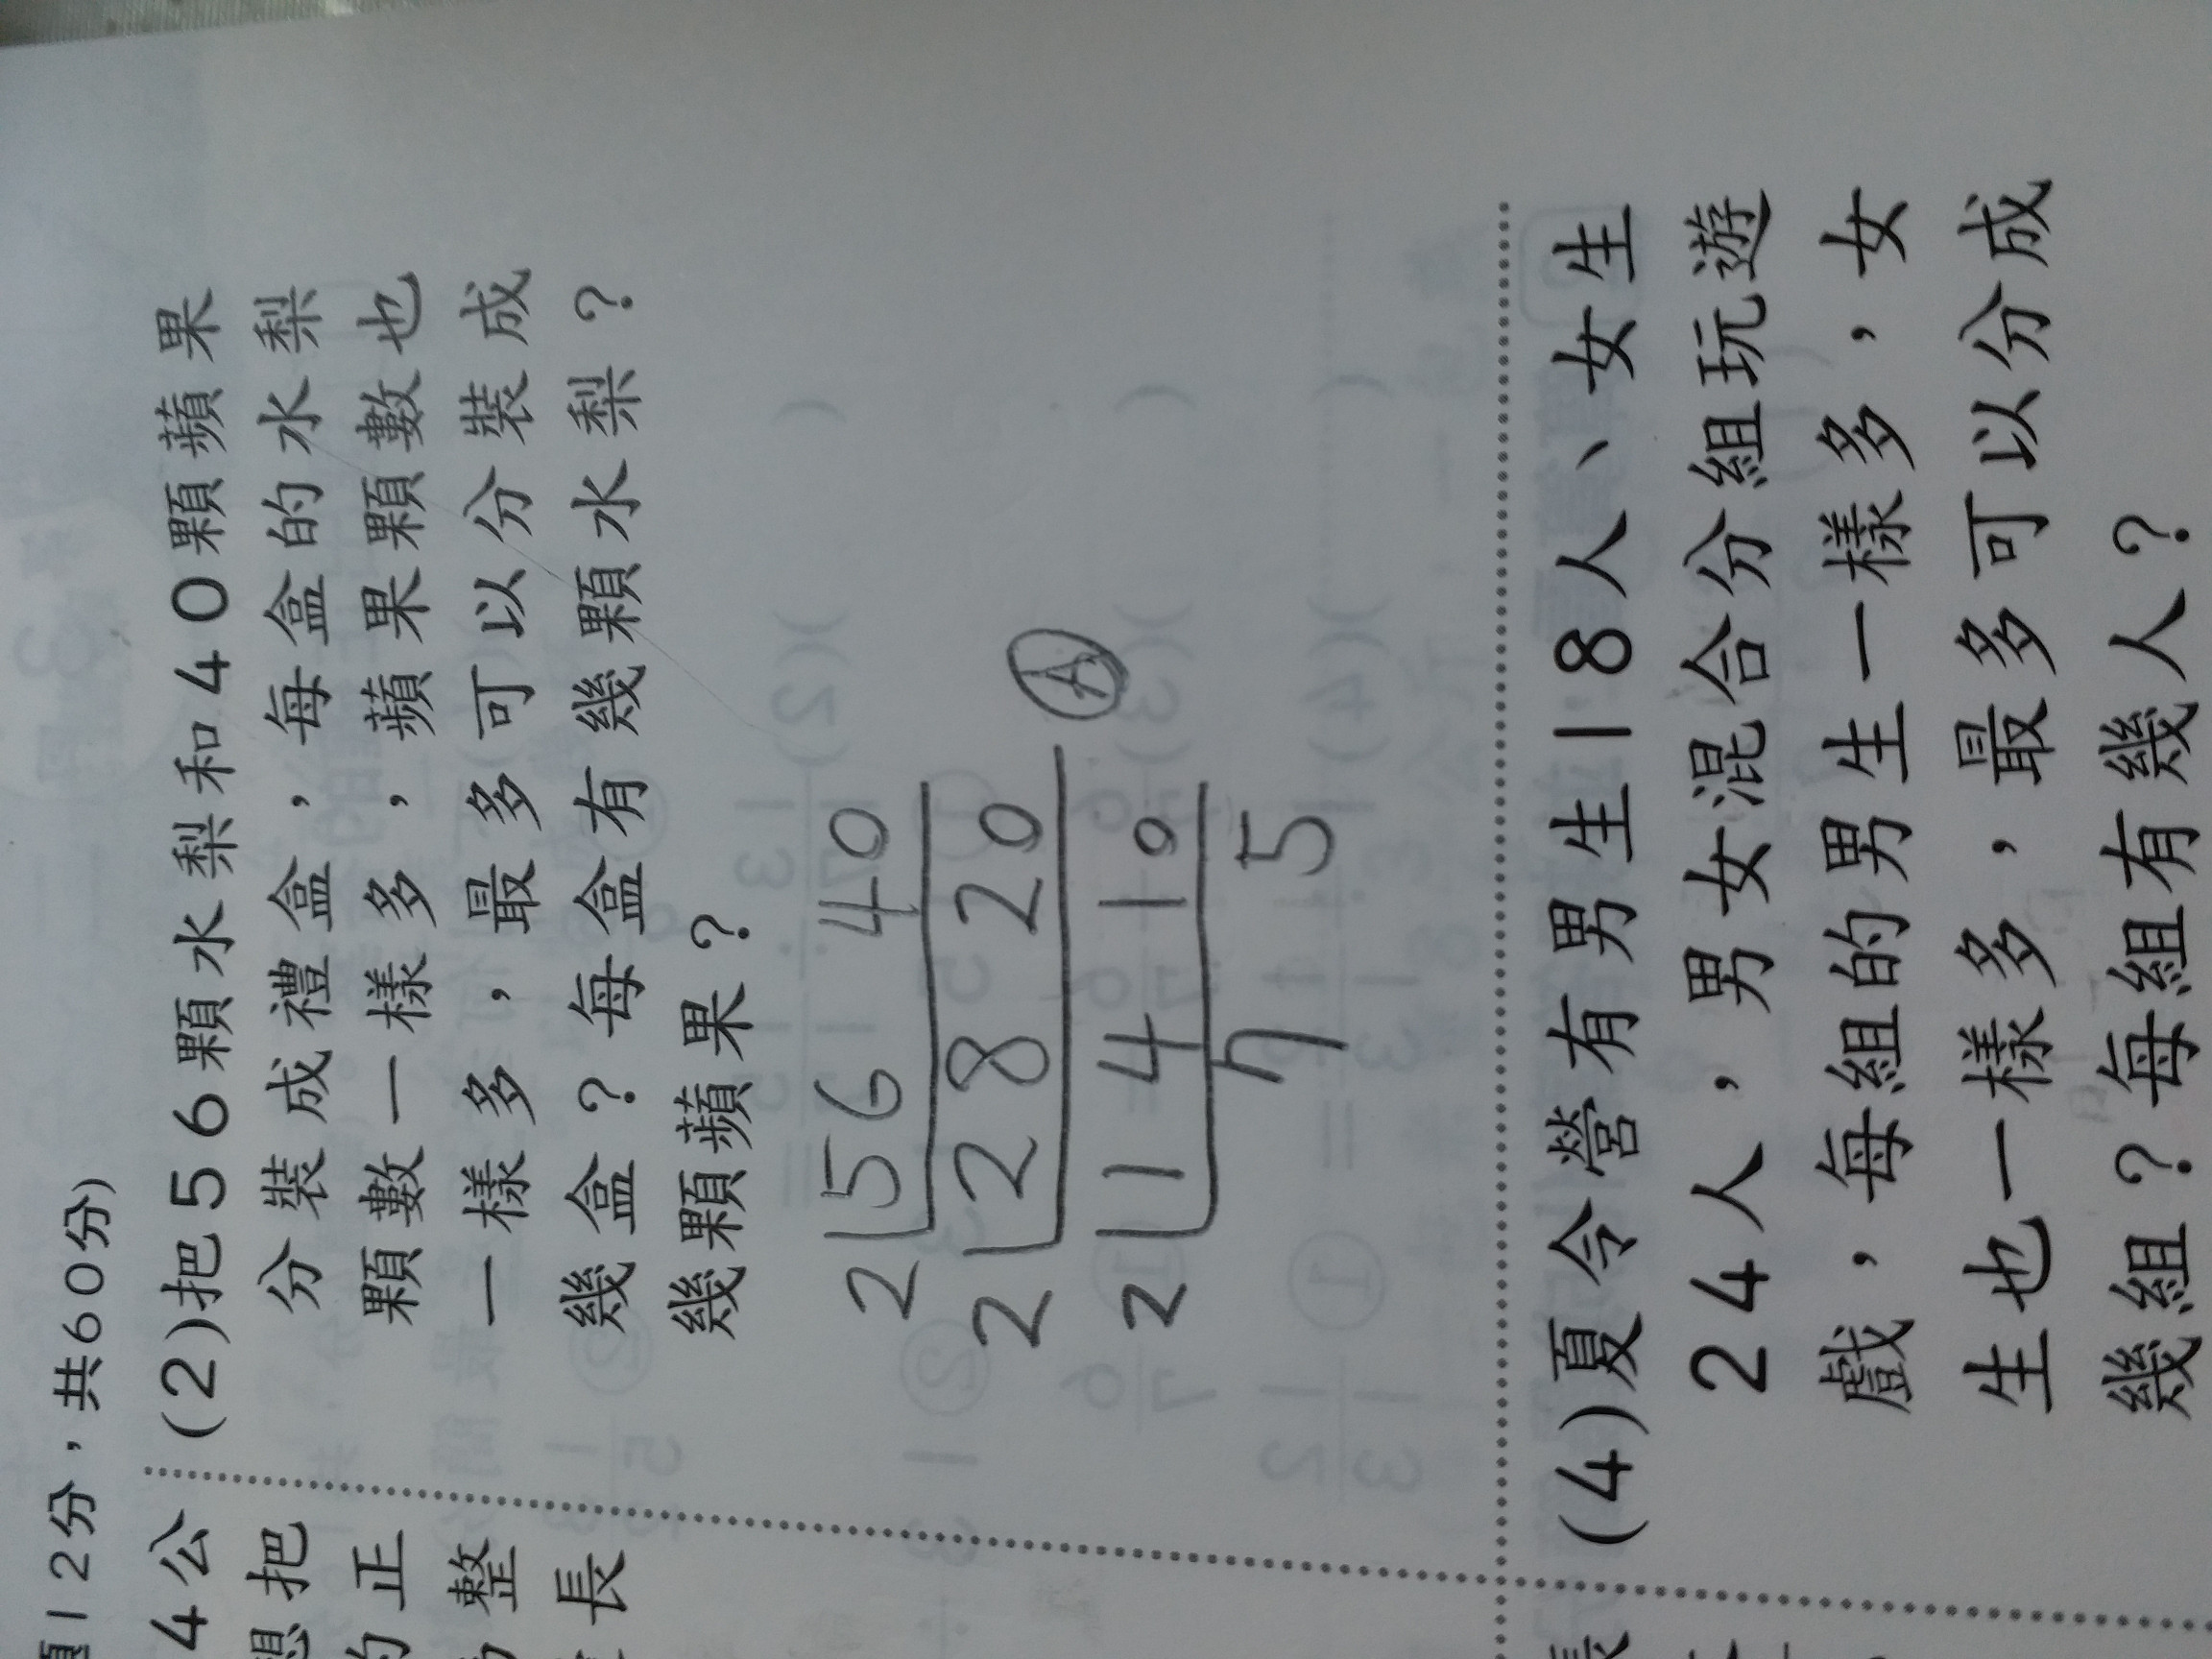 題12分，共60分)
(2)把56顆水梨和40顆蘋果
分裝成禮盒，每盒的水梨
顆數一樣多，蘋果顆數也
一樣多，最多可以分裝成
幾盒？每盒有幾顆水梨？
幾顆蘋果？
2 56 40
2 28 20 A
2 14 10
7 5
4公
想把
的正
整
長
(4)夏令營有男生18人、女生
24人，男女混合分組玩遊
戲，每組的男生一樣多，女
生也一樣多，最多可以分成
幾組？每組有幾人？